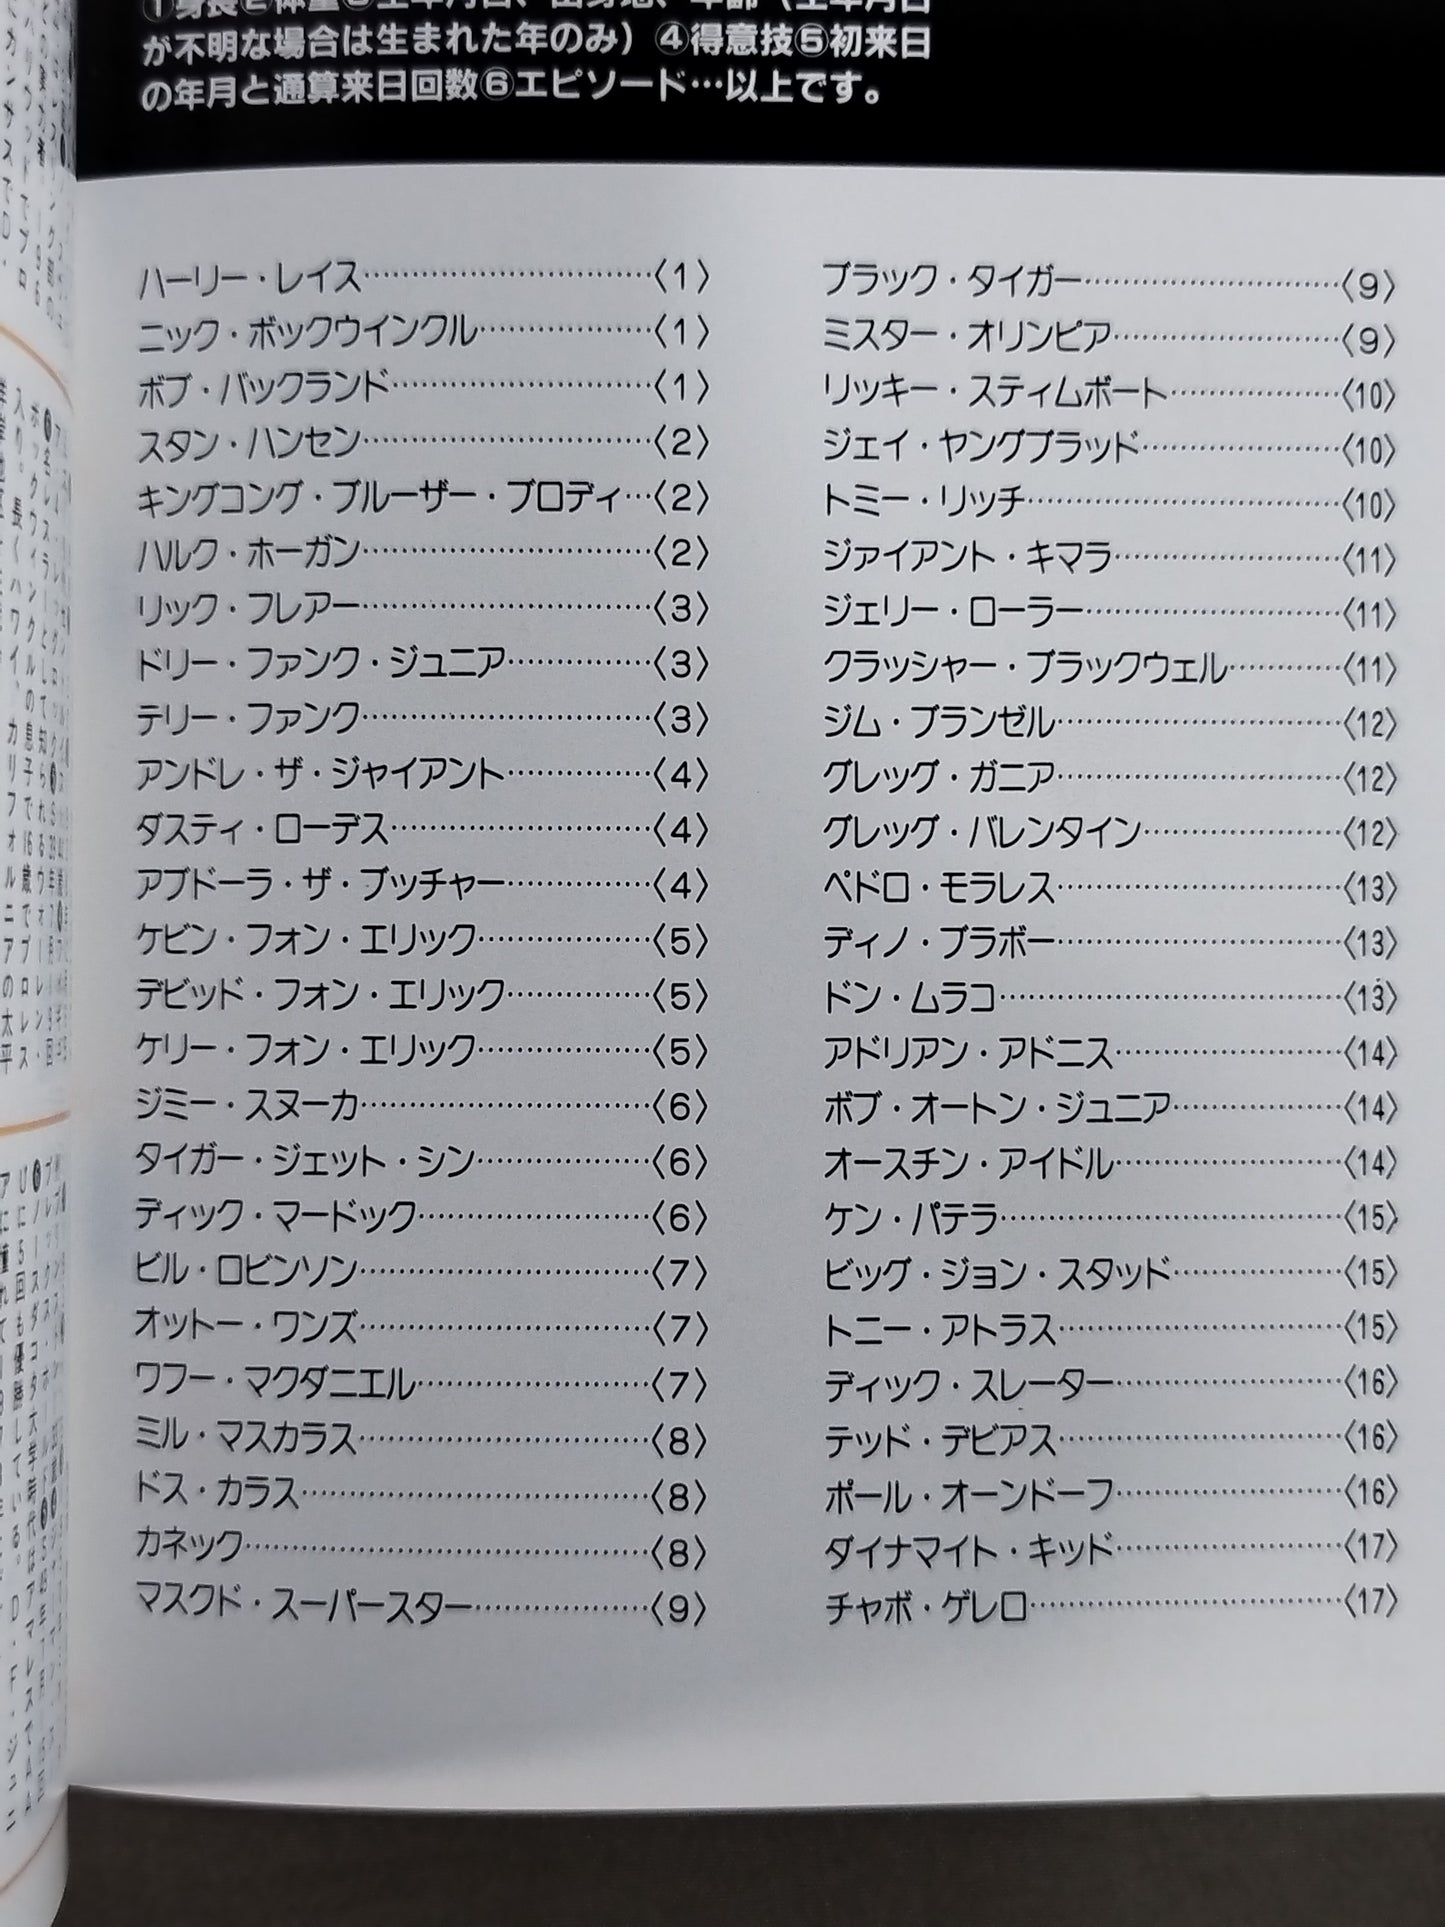 ①身長②体重③生年月日、出身地、年齢（生年月日
が不明な場合は生まれた年のみ）④得意技⑤初来日
の年月と通算来日回数⑥エピソード…以上です。
ハーリー・レイス……〈1〉
ニック・ボックウインクル……〈1〉
ボブ・バックランド……〈1〉
スタン・ハンセン……〈2〉
キングコング・ブルーザー・ブロディ…〈2〉
ハルク・ホーガン……〈2〉
リック・フレアー……〈3〉
ドリー・ファンク・ジュニア……〈3〉
テリー・ファンク……〈3〉
アンドレ・ザ・ジャイアント……〈4〉
ダスティ・ローデス……〈4〉
アブドーラ・ザ・ブッチャー……〈4〉
ケビン・フォン・エリック……〈5〉
デビッド・フォン・エリック……〈5〉
ケリー・フォン・エリック……〈5〉
ジミー・スヌーカ……〈6〉
タイガー・ジェット・シン……〈6〉
ディック・マードック……〈6〉
ビル・ロビンソン……〈7〉
オットー・ワンズ……〈7〉
ワフー・マクダニエル……〈7〉
ミル・マスカラス……〈8〉
ドス・カラス……〈8〉
カネック……〈8〉
マスクド・スーパースター……〈9〉
ブラック・タイガー……〈9〉
ミスター・オリンピア……〈9〉
リッキー・スティムボート……〈10〉
ジェイ・ヤングブラッド……〈10〉
トミー・リッチ……〈10〉
ジァイアント・キマラ……〈11〉
ジェリー・ローラー……〈11〉
クラッシャー・ブラックウェル……〈11〉
ジム・ブランゼル……〈12〉
グレッグ・ガニア……〈12〉
グレッグ・バレンタイン……〈12〉
ペドロ・モラレス……〈13〉
ディノ・ブラボー……〈13〉
ドン・ムラコ……〈13〉
アドリアン・アドニス……〈14〉
ボブ・オートン・ジュニア……〈14〉
オースチン・アイドル……〈14〉
ケン・パテラ……〈15〉
ビッグ・ジョン・スタッド……〈15〉
トニー・アトラス……〈15〉
ディック・スレーター……〈16〉
テッド・デビアス……〈16〉
ポール・オーンドーフ……〈16〉
ダイナマイト・キッド……〈17〉
チャボ・ゲレロ……〈17〉